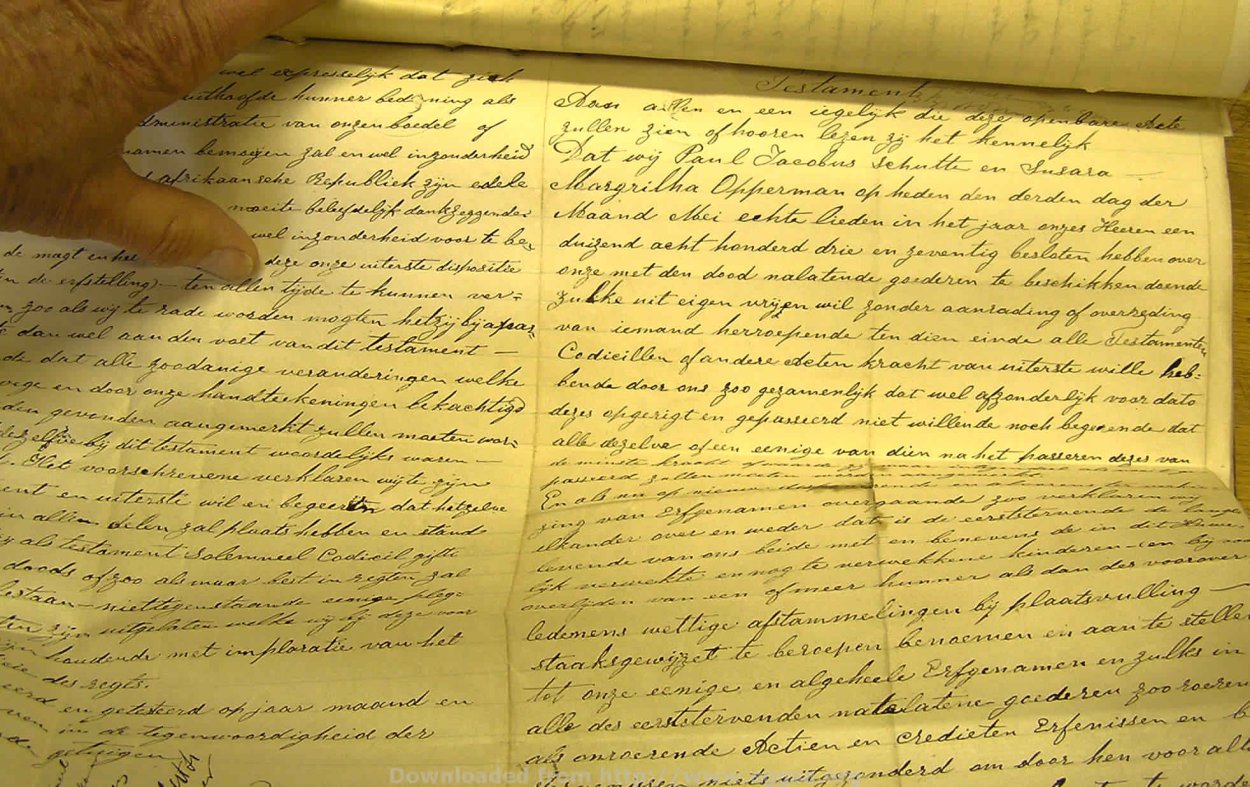 wel expresselijk dat zich
uithoofde hunner bediening als
dministratie van onzen boedel of
namen bemoeijen zal en wel inzonderheid
afrikaansche Republiek zijn edele
moeite beleefdelijk dankzeggende
wel inzonderheid voor te be
de magt en het deze onze uiterste dispositie
de erfstelling) – ten allen tijde te kunnen ver=
zoo als wij te rade worden mogten hetzij bij apar
dan wel aan den voet van dit testament –
dat alle zoodanige veranderingen welke
en door onze handteekeningen bekachtigd
den gevonden aangemerkt zullen moeten wor
dezelfve bij dit testament woordelijks waren –
Het voorschrevene verklaren wij te zijn
ent en uiterste wil en begeeren dat hetzelve
in allen delen zal plaats hebben en stand
als testament Solemneel Codicil gifte
doods of zoo als maar best in regten zal
bestaan – niettegenstaande eenige plege
zijn uitgelaten welke wij bij deze voor
houdende met imploratie van het
des regts.
en getesteerd op jaar maand en
in de tegenwoordigheid der
getuigen
Testament
Aan allen en een iegelijk die deze openbare Acte
zullen zien of hooren lezen zij het kennelijk
Dat wij Paul Jacobus Schutte en Susara –
Margritha Opperman op heden den derden dag der
Maand Mei echte lieden in het jaar onzes Heeren een
duizend acht honderd drie en zeventig besloten hebben over
onze met den dood nalatende goederen te beschikken doende
zulke uit eigen vrijen wil zonder aanrading of overreding
van iemand herroepende ten dien einde alle Testamenten
Codicillen of andere Acten kracht van uiterste wille heb=
bende door ons zoo gezamenlijk dat wel afzonderlijk voor dato
dezes opgerigt en gepasseerd niet willende noch begerende dat
alle dezelve of een eenige van dien na het passeren dezes van
de minste kracht of waarde
passeerd zullen
En als nu op nieuw
zing van Erfgenamen overgaande zoo verklaren wij
elkander over en weder dat is de eerststervende de langst
levende van ons beide met en benevens de in dit Huwe
lijk verwekte en nog te verwekkene kinderen – en bij voor
overlijden van een of meer hunner als dan des voorover
ledenens wettige afstammelingen bij plaatsvulling –
staaksgewijze te beroepen benoemen en aan te stellen
tot onze eenige en algeheele Erfgenamen en zulks in
alle des eerststervenden natelatene goederen zoo roeren
als onroerende Actien en Credieten Erfenissen en b
niets uitgezonderd om door hen voor alt
Downloaded from http://www.